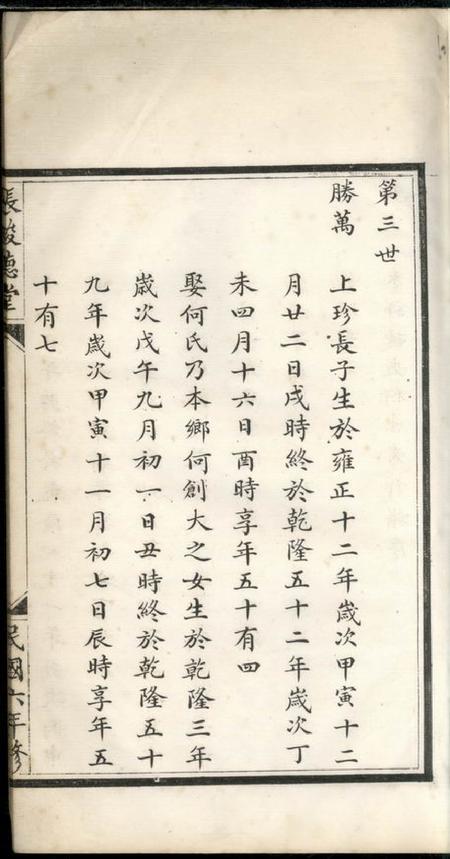 第三世
勝萬　上珍長子生於雍正十二年歲次甲寅十二
月廿二日戌時終於乾隆五十二年歲次丁
未四月十六日酉時享年五十有四
娶何氏乃本鄉何創大之女生於乾隆三年
歲次戊午九月初一日丑時終於乾隆五十
九年歲次甲寅十一月初七日辰時享年五
十有七
張駿德堂
民國六年修